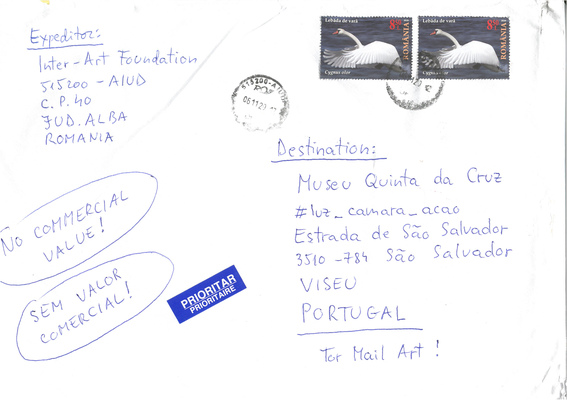 Expeditor:
Inter-Art Foundation
515200 - AIUD
C.P. 40
JUD. ALBA
ROMANIA
Lebăda de vară
ROMÂNIA
Cygnus olor
Lebăda de vară
ROMÂNIA
Cygnus olor
515200-AIUD
06.11.20
Destination:
Museu Quinta da Cruz
#luz_camara_acao
Estrada de São Salvador
3510 - 784 São Salvador
VISEU
PORTUGAL
For Mail Art !
NO COMMERCIAL
VALUE!
SEM VALOR
COMERCIAL!
PRIORITAR
PRIORITAIRE